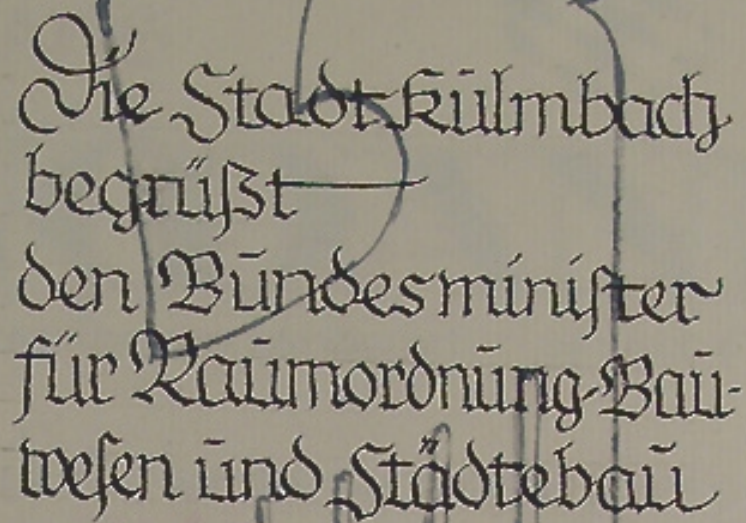 Die Stadt Kulmbach
begrüßt
den Bundesminister
für Raumordnung-Bau-
wesen und Städtebau